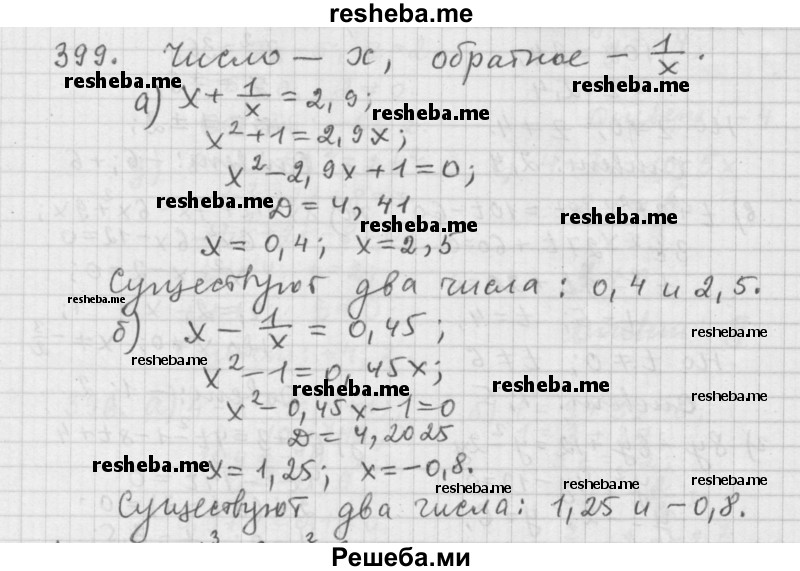 resheba.me
399. Число – x, обратное – 1/x.
resheba.me resheba.me
а) x + 1/x = 2,9;
resheba.me
x² + 1 = 2,9x;
x² – 2,9x + 1 = 0;
resheba.me
D = 4,41
resheba.me resheba.me
x = 0,4; x = 2,5
Существуют два числа: 0,4 и 2,5.
resheba.me
б) x – 1/x = 0,45;
resheba.me
resheba.me
x² – 1 = 0,45x;
resheba.me resheba.me
resheba.me
x² – 0,45x – 1 = 0
D = 4,2025
resheba.me
x = 1,25; x = –0,8.
resheba.me resheba.me resheba.me
Существуют два числа: 1,25 и –0,8.
Решеба.ми